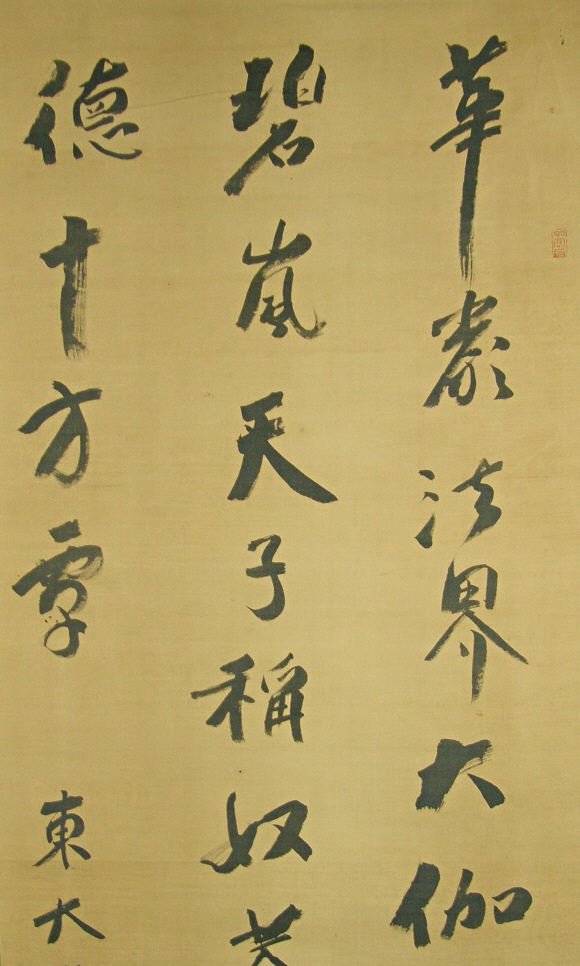 華嚴法界大伽
碧嵐天子稱奴
德十方覃
東大